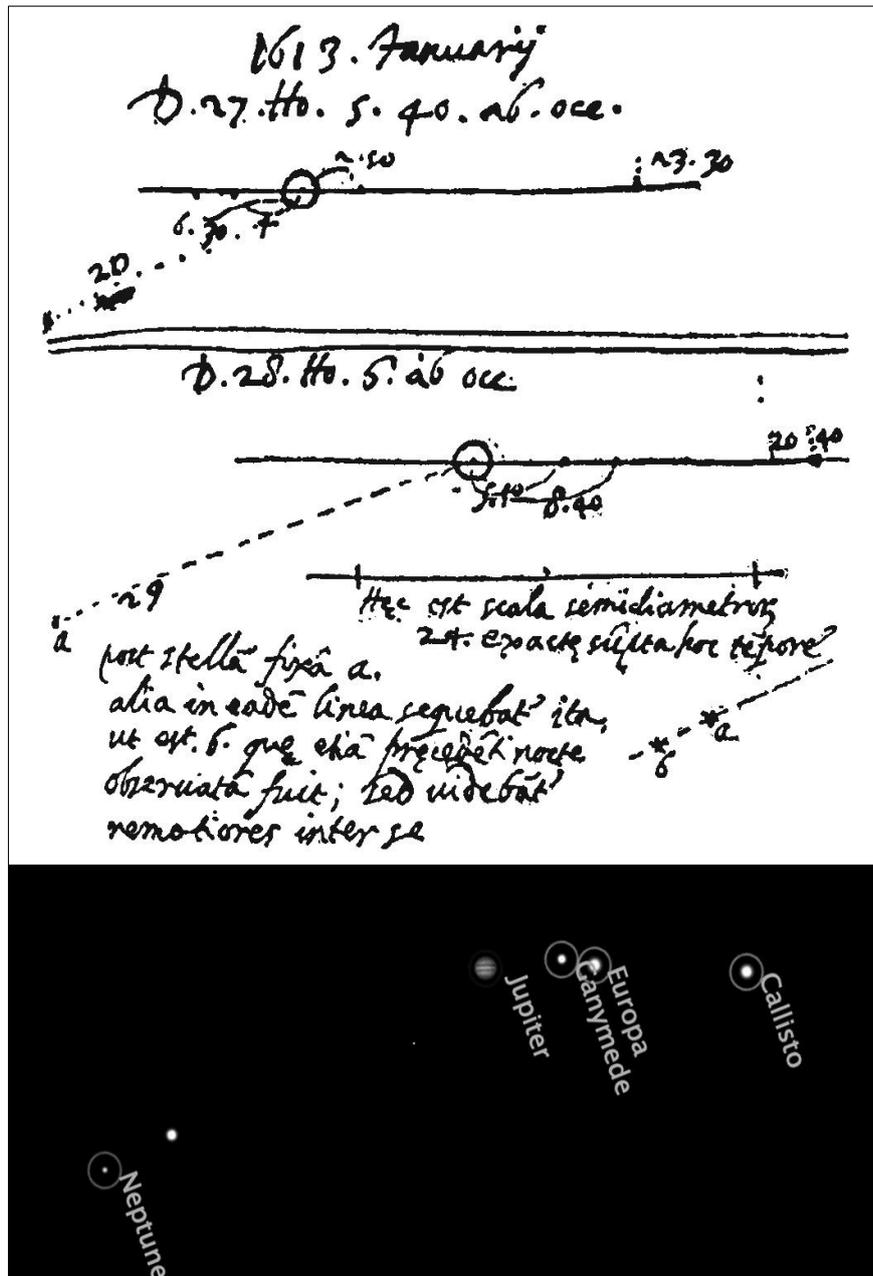 1613. Januarij
D. 27. Ho. 5. 40. ab. occ.
2.50
23.30
6. 30. 4
20
D. 28. Ho. 5. ab occ.
20 40
5.10 8.40
29
a
Hęc est scala semidiametrorum
24. exactę sũpta hoc tẽpore
post stellã fixã a.
alia in eadẽ linea sequebat' ita,
ut est. b. quę etiã pręcedẽti nocte
a
b
obseruata fuit; sed uidebãt'
remotiores inter se
Jupiter
Ganymede
Europa
Callisto
Neptune